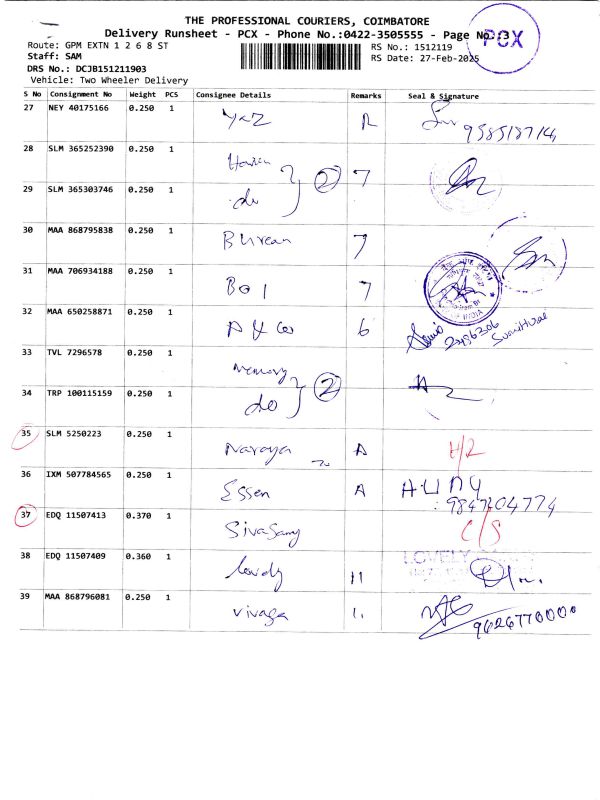 THE PROFESSIONAL COURIERS, COIMBATORE
Delivery Runsheet - PCX - Phone No.:0422-3505555 - Page No.:3
PCX
Route: GPM EXTN 1 2 6 8 ST
Staff: SAM
DRS No.: DCJB151211903
Vehicle: Two Wheeler Delivery
RS No.: 1512119
RS Date: 27-Feb-2025
S No Consignment No Weight PCS Consignee Details Remarks Seal & Signature
27 NEY 40175166 0.250 1
28 SLM 365252390 0.250 1
29 SLM 365303746 0.250 1 do 2 7
30 MAA 868795838 0.250 1 Burean 7
31 MAA 706934188 0.250 1 BOI 7
32 MAA 650258871 0.250 1 6
33 TVL 7296578 0.250 1 memory
34 TRP 100115159 0.250 1 do 2
35 SLM 5250223 0.250 1 Naraya A
36 IXM 507784565 0.250 1 Essen A
37 EDQ 11507413 0.370 1 SivaSamy C/S
38 EDQ 11507409 0.360 1 lovely 11 LOVELY
39 MAA 868796081 0.250 1 vinaga 11 9626770000